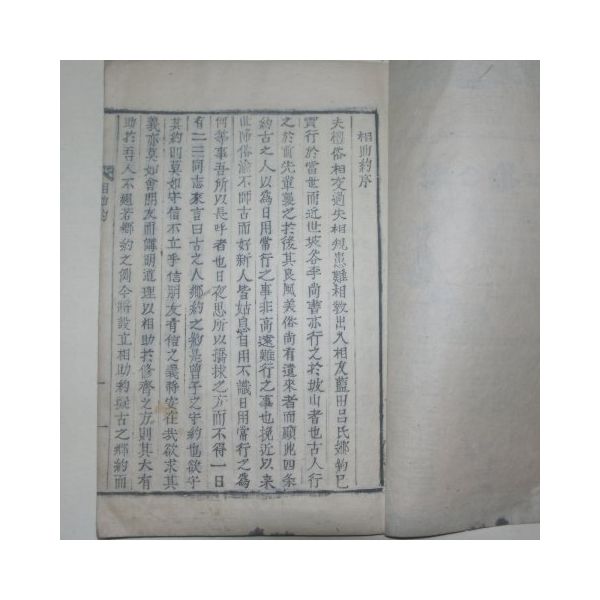 相助約序
夫禮俗相交過失相規患難相救出入相友藍田呂氏鄉約已
實行於當世而近世坡谷乎尚書亦行之於坡山者也古人行
之於前先輩襲之於後其良風美俗尚有遺來者而顧此四条
約古之人以爲日用常行之事非高遠難行之事也挽近以來
世降俗渝不師古而好新人皆姑息自用不識日用常行之爲
何等事吾所以長呼者也日夜思所以攟拔之方而不得一日
有二三同志來言曰古之人鄉約之約是曾子之守約也欲守
其約則莫如守信不立乎信朋友有信之義將安在哉欲求其
義亦莫如會朋友而講明道理以相助於修齊之方則其大有
助於吾人不遐若鄉約之例今將設立相助約擬古之鄉約而
相助約